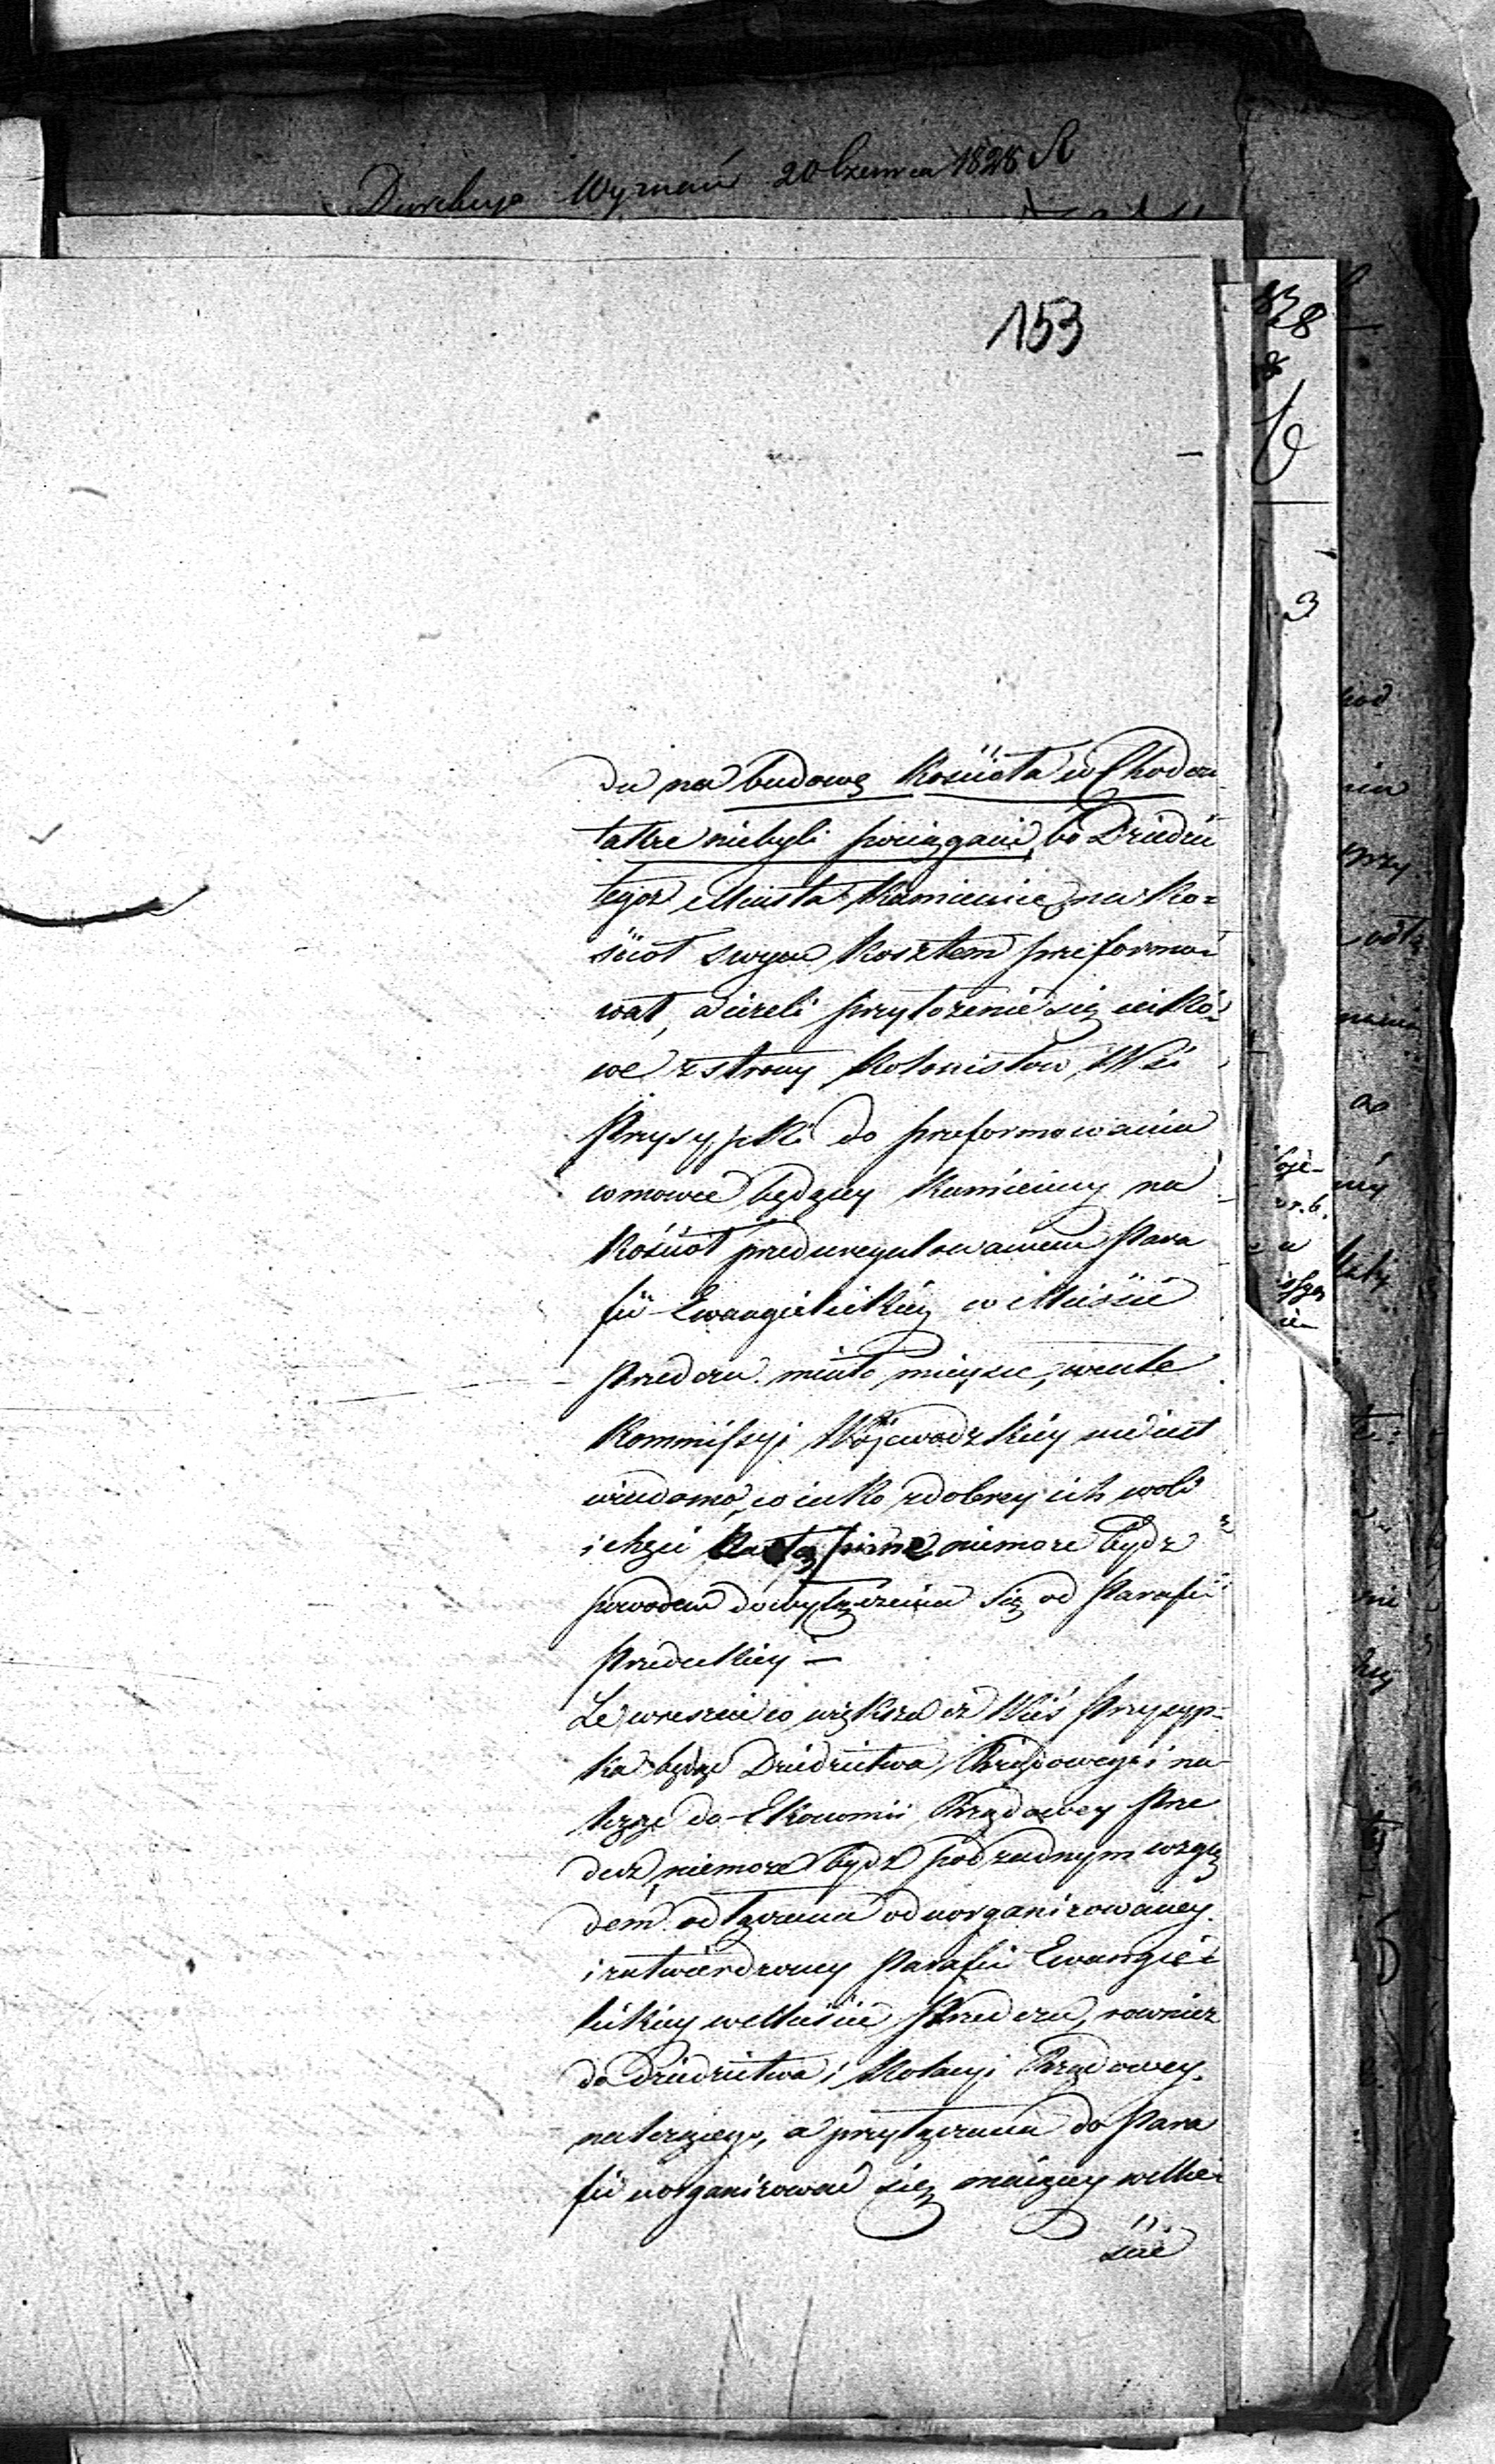 Wyznań 20 Czerwca 1828 R
153
du na budowę Kościoła w Chodczu
także niebyli pociągani, bo Dziedzic
tegoż Miasta Kamienicę na Ko=
ściot swym kosztem preformo=
wał, a ieżeli przyłożenie się iakó=
we z strony Kolonistow, Wsi
Przysypki do preformowania
w mowie będącey Kamienicy na
Kościoł przed uregulowaniem Para
fii Ewangielickiey w Mieście
Przedczu miało mieysce, wcale
Kommissyi Wojewodzkiey nie iest
wiadomo, co iako z dobrey ich woli
i chęci nastąpione niemoże bydz
powodem do wyłączenia się od Parafii
Przedeckiey —
Ze wreszcie co większa iż Wieś Przysyp=
ka będąc Dziedzictwa Rządowego i na
leżąc do Ekonomii Rządowey Prze
decz, niemoże bydz pod żadnym wzglę
dem odłączona od uorganizowaney
i zatwierdzoney Parafii Ewangie=
lickiey w Mieście Przedczu, rownież
do Dziedzictwa i Kolacyi Rządowey
należącego, a przyłączona do Para
fii uorganizować się maiącey w Mie=
scie
828
3